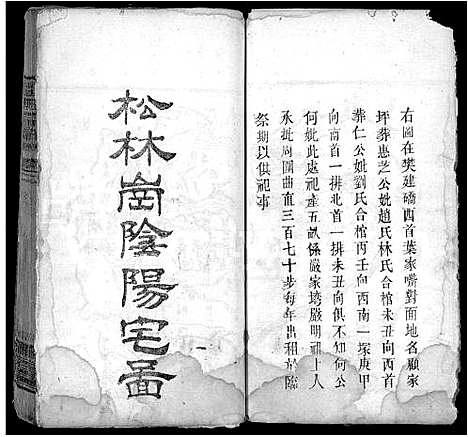 右圖在樊建礄西首葉家嘴對面地名顧家
坪葬惠芝公妣趙氏林氏合棺未丑向西首
葬仁公妣劉氏合棺丙壬向西南一塚庚甲
向南首一排北首一排未丑向俱不知何公
何妣此處祀產五畝係嚴家塆嚴明祀上人
承批周圍曲直三百七十步每年出租於臨
祭期以俱祀事
松林崗陰陽宅圖